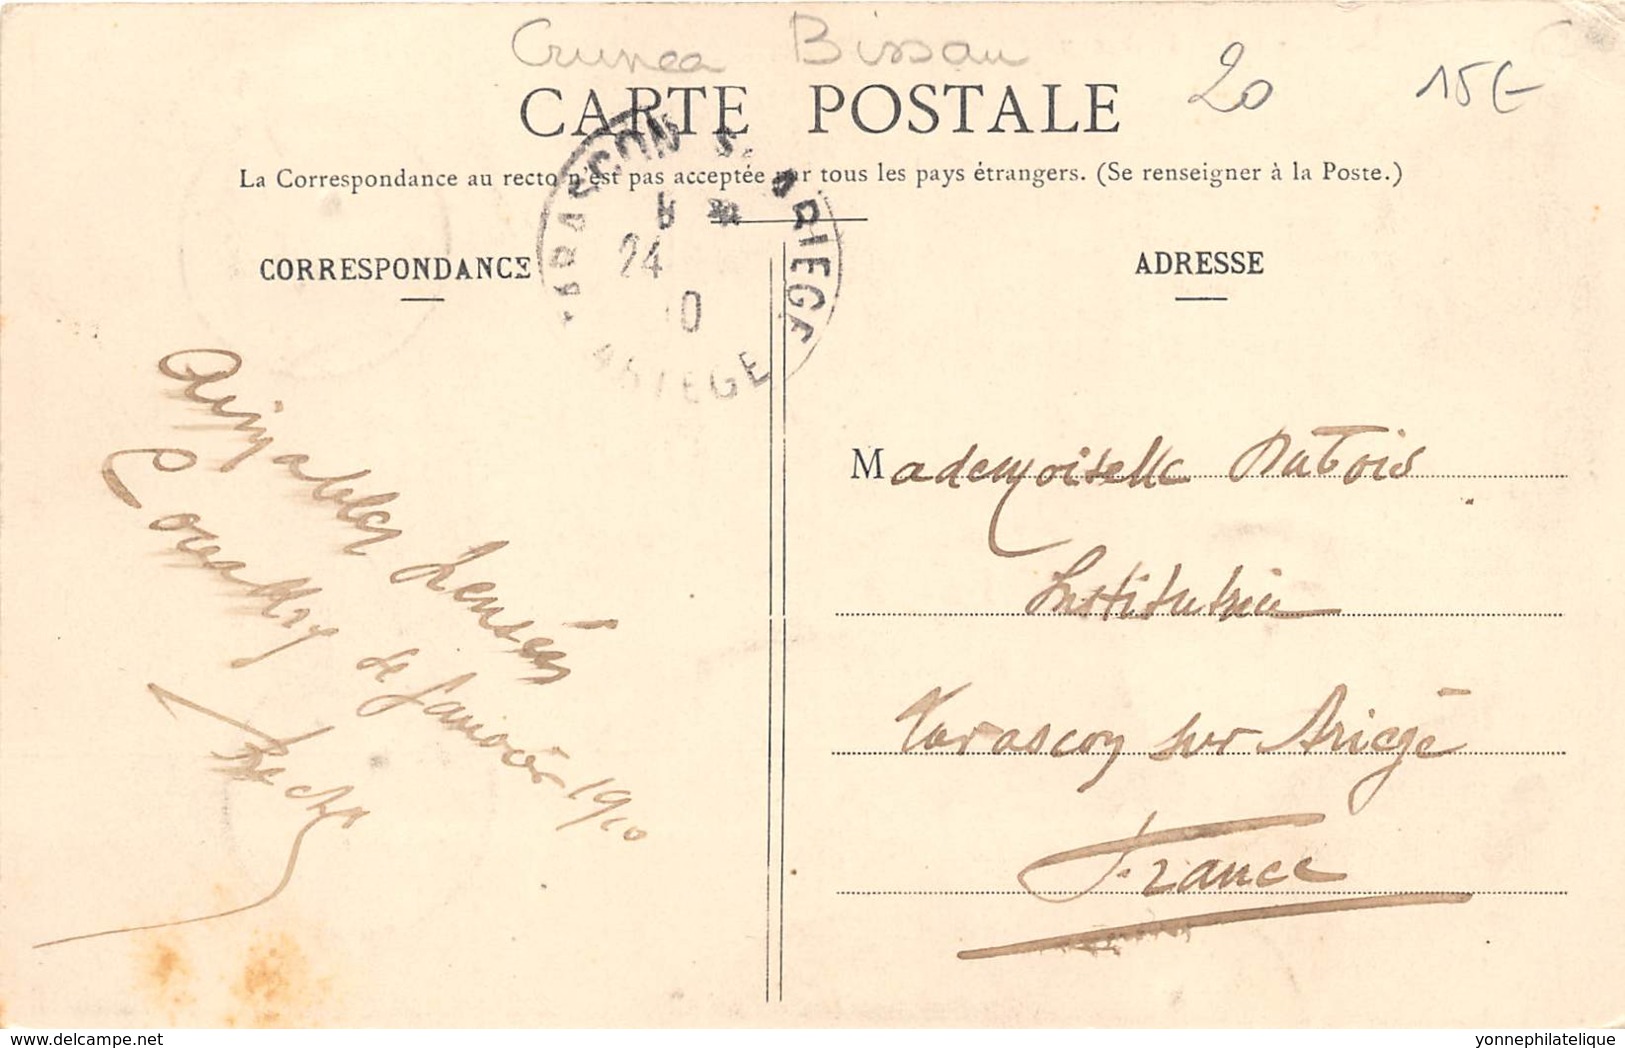 Guinea Bissau
20
15€
CARTE POSTALE
La Correspondance au recto n'est pas acceptée par tous les pays étrangers. (Se renseigner à la Poste.)
TARASCON S. ARIEGE
24
10
ARIEGE
CORRESPONDANCE
ADRESSE
Aimables Pensées
Conakry
Janvier 1910
Mademoiselle Dubois
Institutrice
Tarascon sur Ariège
France
delcampe.net
yonnephilatelique